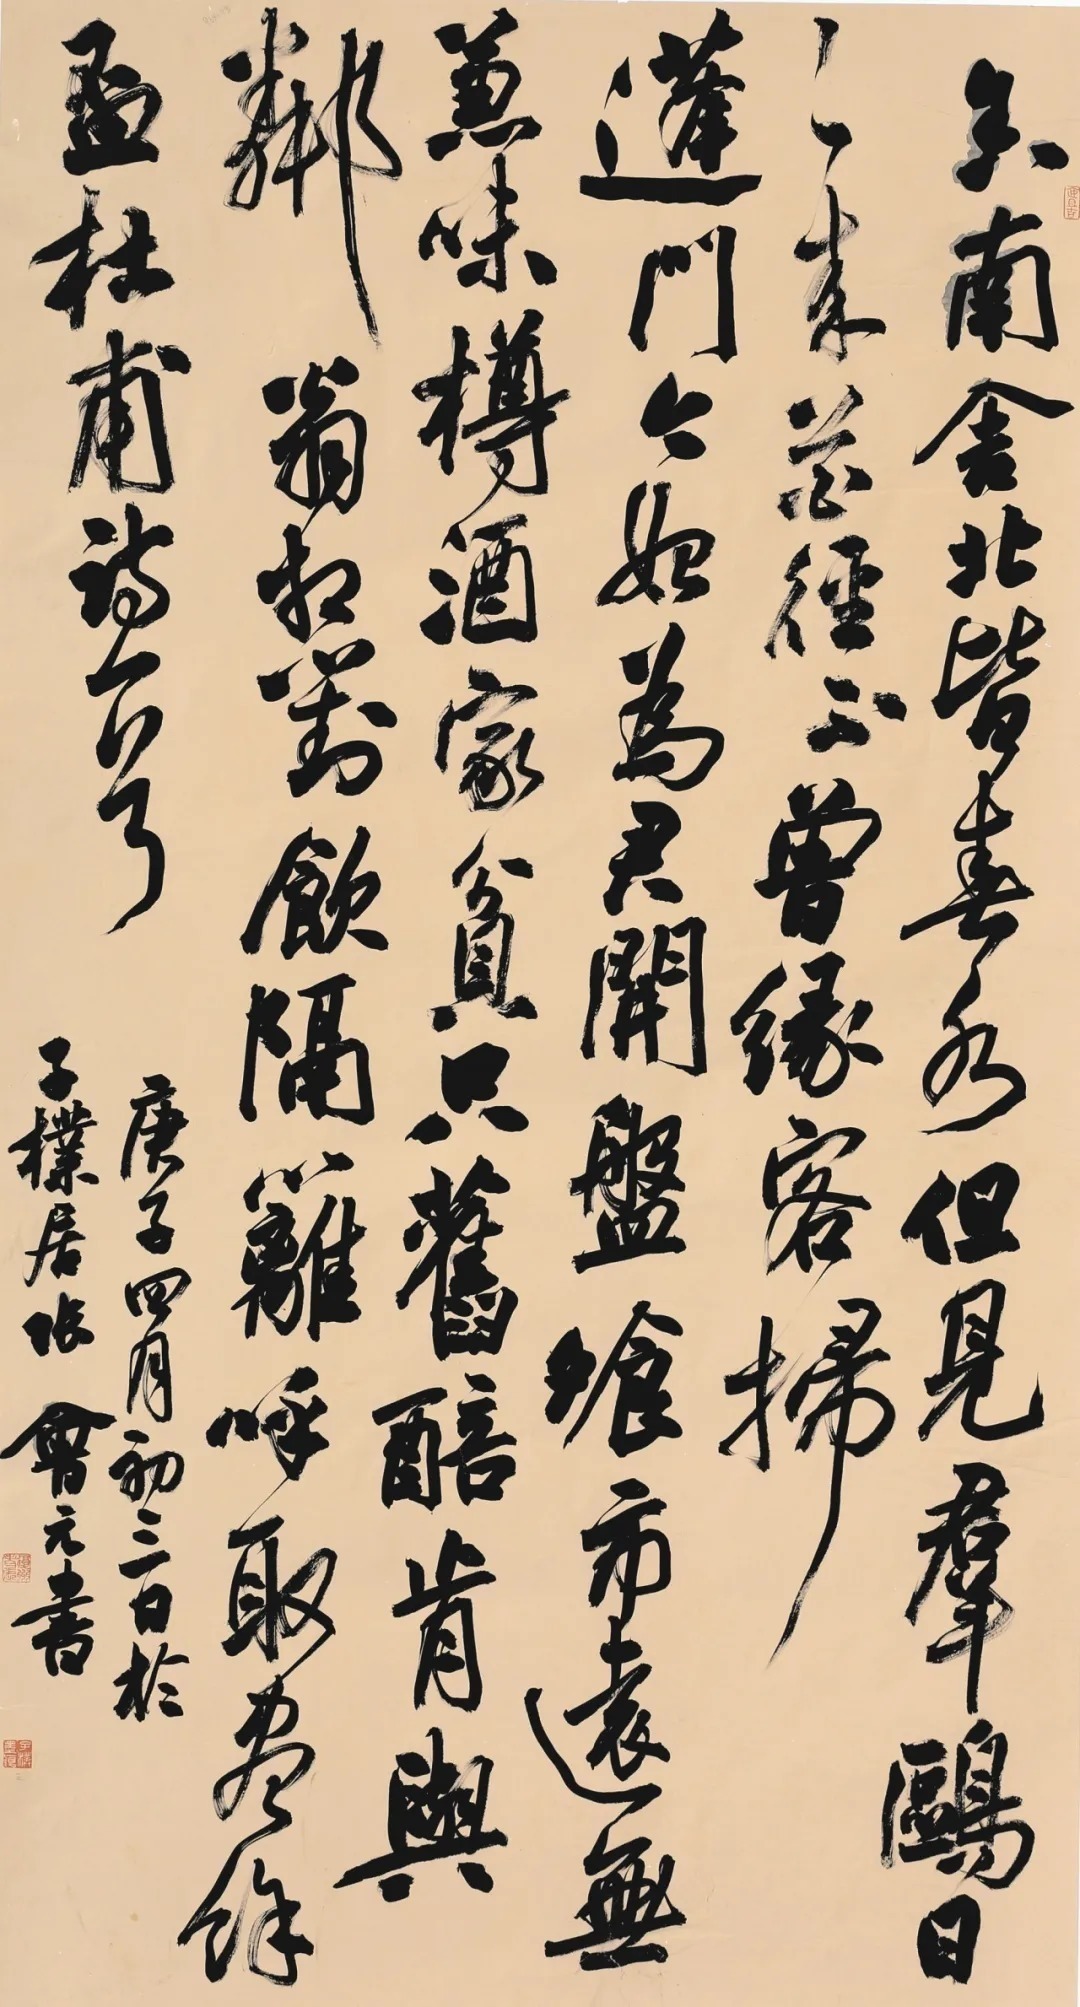 舍南舍北皆春水但見羣鷗日
〻来花徑不曾緣客掃
蓬門今始為君開盤飧市遠無
兼味樽酒家貧只舊醅肯與
鄰翁相對飲隔籬呼取盡餘
盃杜甫詩一首
庚子四月初三日於
子樸居張會元書